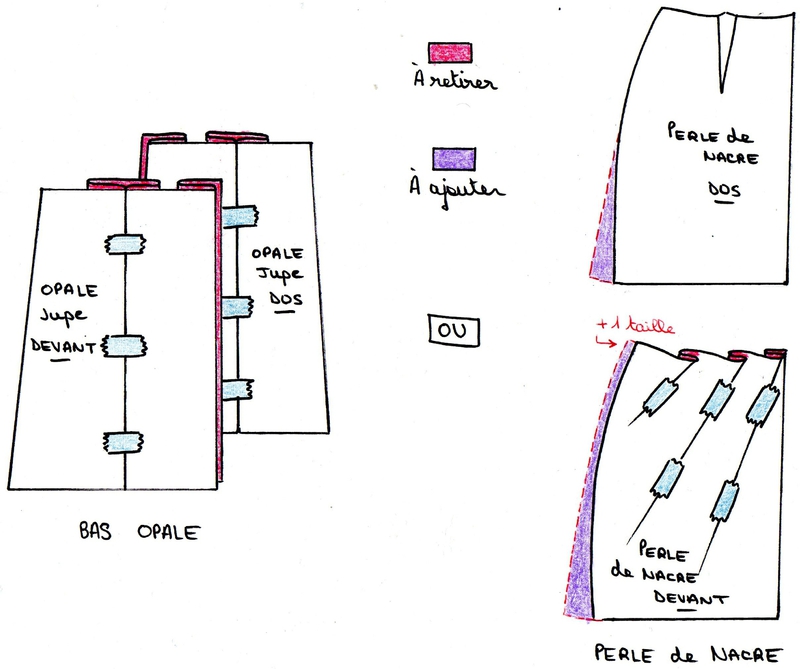 À retirer
À ajouter
OU
OPALE
Jupe
DEVANT
OPALE
Jupe
DOS
BAS OPALE
PERLE de
NACRE
DOS
+1 taille
PERLE
de NACRE
DEVANT
PERLE de NACRE